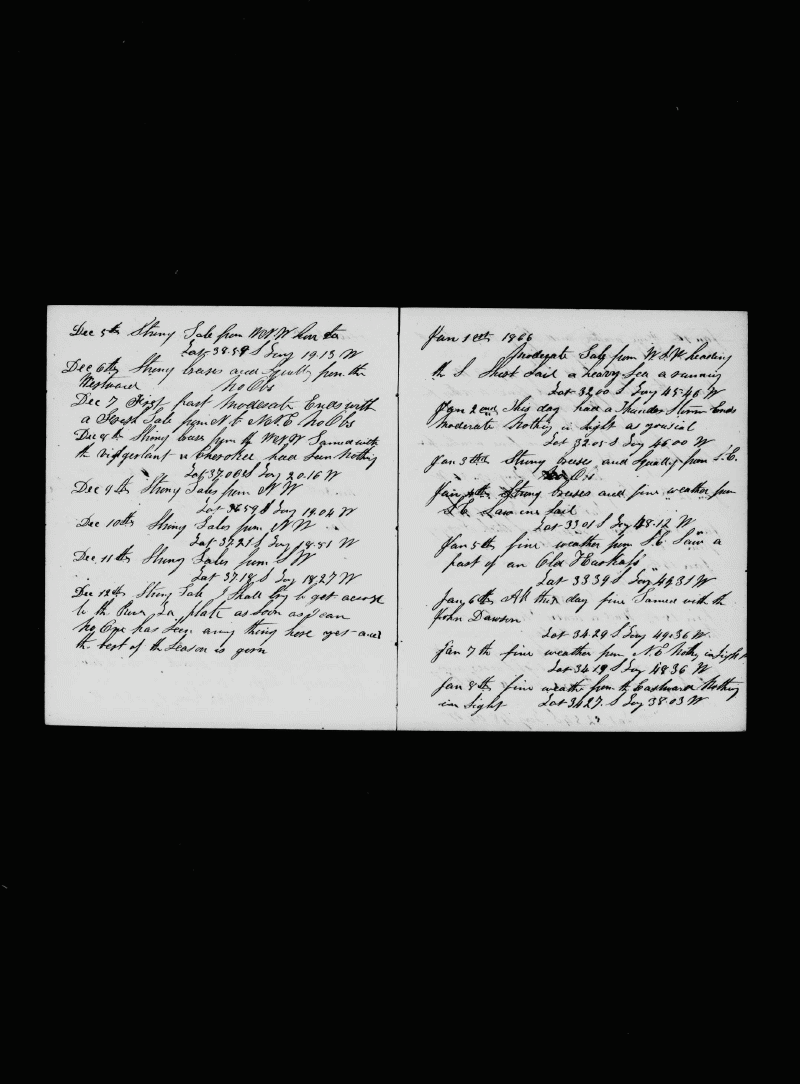 Dec 5th Strong Gale from WNW
Lat 38.59 S Long 19.13 W
Dec 6th Strong breases and Squally from the
Westward No Obs
Dec 7 First part Moderate Ends with
a Fresh Gale from N to NNE No Obs
Dec 8th Strong from the WNW Gamed with
the Cherokee had Seen Nothing
Lat 37.00 S Long 20.16 W
Dec 9th Strong Gales from NW
Lat 36.59 S Long 19.04 W
Dec 10th Strong Gales from NW
Lat 37.21 S Long 18.51 W
Dec 11th Strong Gales from SW
Lat 37.18 S Long 18.27 W
Dec 12th Strong Gale I Shall try to get acrose
to the River La plate as Soon as I can
No One has Seen any thing here yet and
the best of the Season is gorn
Jan 1 1866
Moderate Gale from heading
the S Short Sail a heavy Sea a running
Lat 32.00 S Long 45.46 W
Jan 2 This day had a Thunder Storm Ends
Moderate Nothing in Sight as yousial
Lat 32.05 S Long 46.00 W
Jan 3 Strong breeses and Squally from S.E.
No Obs
Jan 4th Strong breeses and fine weather from
S.E. Saw one Sail
Lat 33.01 S Long 48.12 W
Jan 5th fine weather from Saw a
part of an Old
Lat 33.39 S Long 49.31 W
Jan 6th All this day fine Gamed with the
John Dawson
Lat 34.29 S Long 49.36 W.
Jan 7th fine weather from N.E Nothing in Sight
Lat 34.19 S Long 48.36 W
Jan 8th fine weather from the Eastward Nothing
in Sight Lat 34.27. S Long 38.03 W